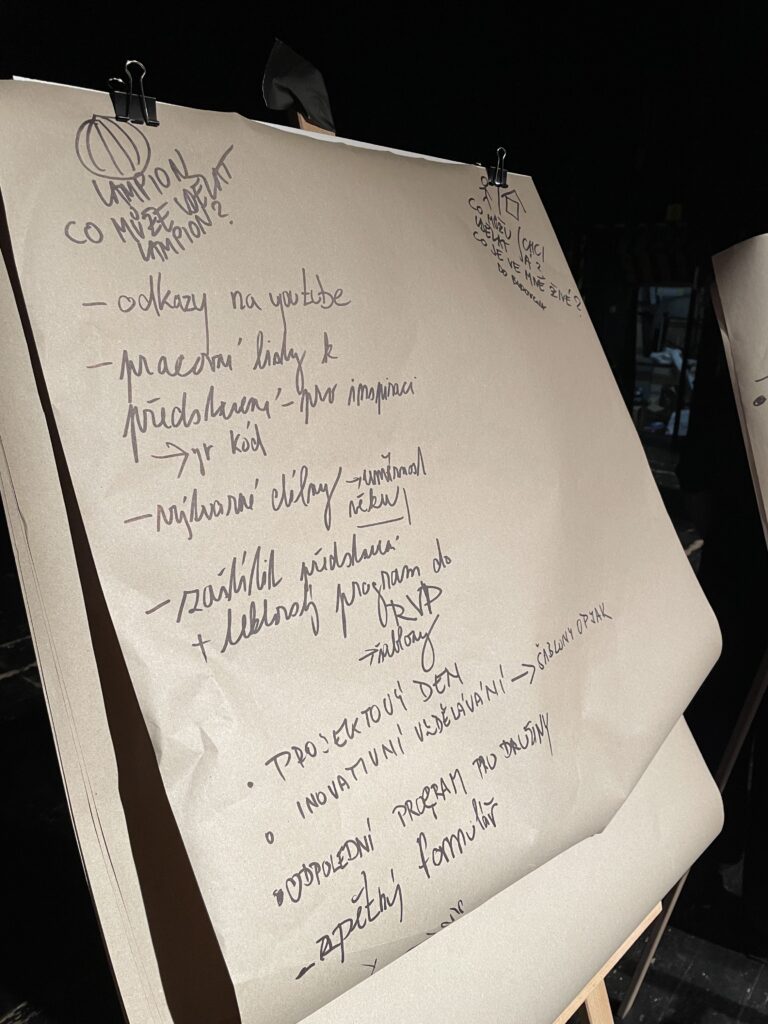 LAMPION
CO MŮŽE UDĚLAT
LAMPION?
CO MŮŽU / CHCI
UDĚLAT JÁ?
CO JE VE MNĚ ŽIVÉ?
DO
- odkazy na youtube
- pracovní listy k
představení - pro inspiraci
→ qr kód
- výtvarné dílny → umírnost
věku
- zaštítit představení
+ lektorský program do
RVP
→ šablony
• PROJEKTOVÝ DEN
• INOVATIVNÍ VZDĚLÁVÁNÍ → ŠABLONY OPJAK
• ODPOLEDNÍ PROGRAM PRO DRUŽINY
- zpětný formulář